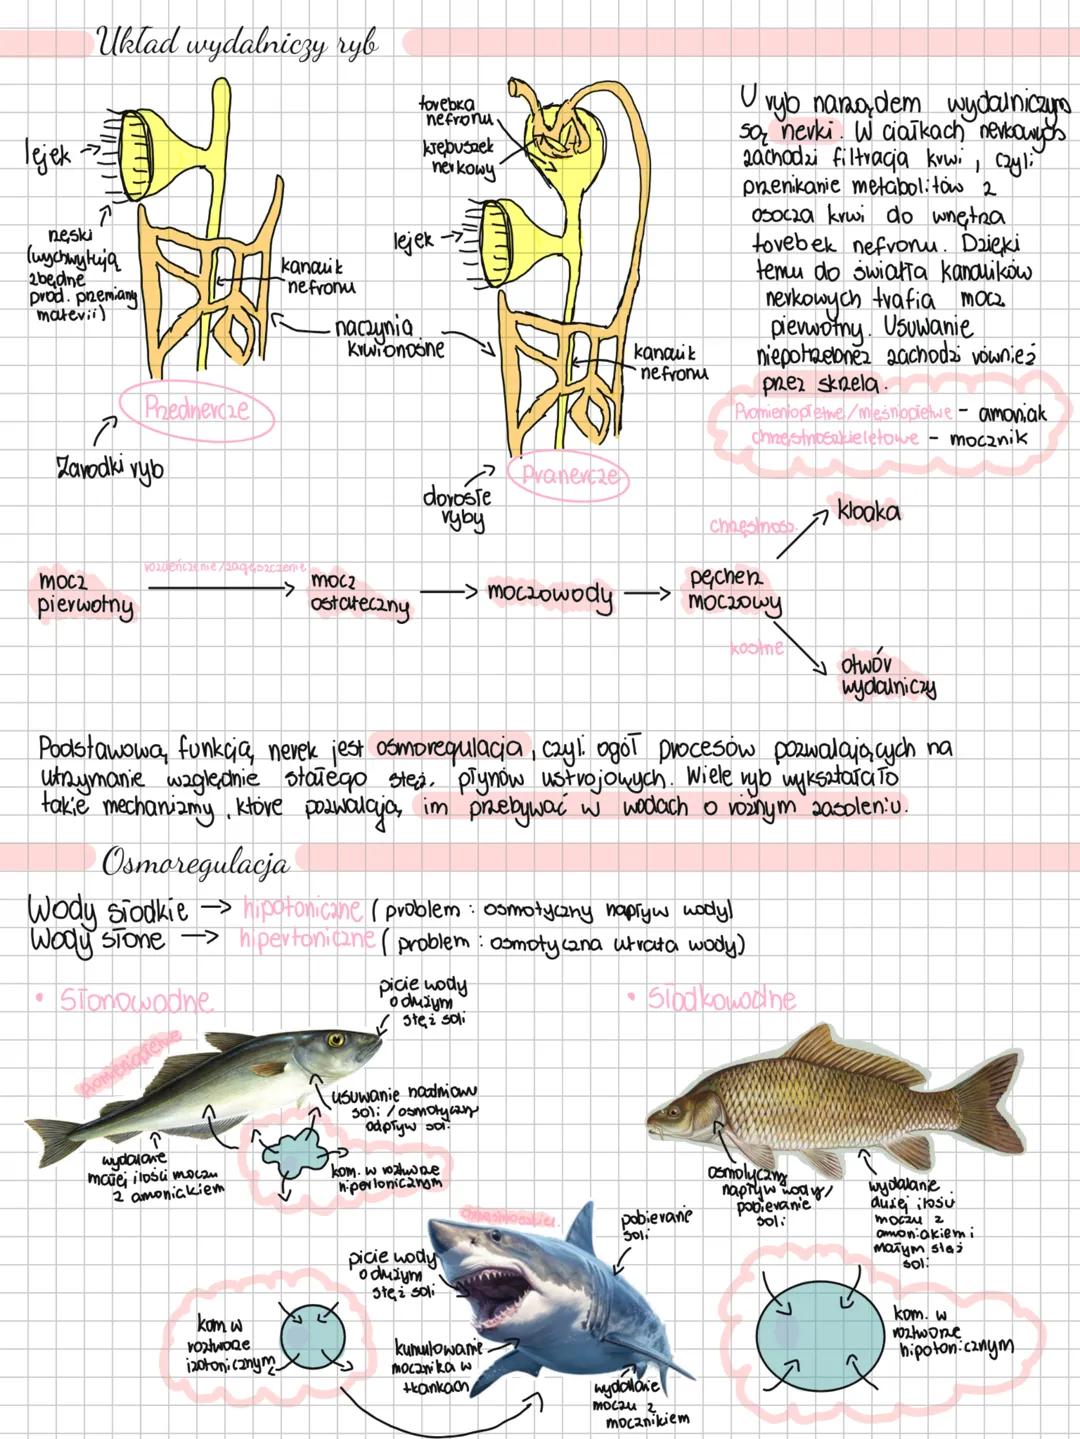 Układ wydalniczy ryb
lejek
rzęski
(wychwytują
zbędne
prod. przemiany
materii)
kanalik
nefronu
naczynia
krwionośne
Przednercze
Zarodki ryb
torebka
nefronu
kłębuszek
nerkowy
lejek
kanalik
nefronu
Pranercze
dorosłe
ryby
U ryb narządem wydalniczym
są nerki. W ciałkach nerkowych
zachodzi filtracja krwi, czyli
przenikanie metabolitów z
osocza krwi do wnętrza
torebek nefronu. Dzięki
temu do światła kanalików
nerkowych trafia mocz
pierwotny. Usuwanie
niepotrzebnez zachodzi również
przez skrzela.
Promieniopłetwe/mięśniopłetwe - amoniak
chrzęstnoszkieletowe - mocznik
mocz
pierwotny
rozcieńczenie/zagęszczenie
mocz
ostateczny
moczowody
pęcherz
moczowy
chrzęstnosz.
kloaka
kostne
otwór
wydalniczy
Podstawową funkcją nerek jest osmoregulacja, czyli ogół procesów pozwalających na
utrzymanie względnie stałego stęż. płynów ustrojowych. Wiele ryb wykształciło
takie mechanizmy, które pozwalają im przebywać w wodach o różnym zasoleniu.
Osmoregulacja
Wody słodkie → hipotoniczne (problem: osmotyczny napływ wody)
Wody słone → hipertoniczne (problem: osmotyczna utrata wody)
• Słonowodne
promieniopłetwe
picie wody
o dużym
stęż soli
usuwanie nadmiaru
soli/osmotyczny
odpływ soli
wydalanie
małej ilości moczu
z amoniakiem
kom. w roztworze
hipertonicznym
• Słodkowodne
osmotyczny
napływ wody/
pobieranie
soli
wydalanie
dużej ilości
moczu z
amoniakiem i
małym stęż
soli
kom. w
roztworze
hipotonicznym
chrzęstnoszkiel.
picie wody
o dużym
stęż soli
pobieranie
soli
kumulowanie
mocznika w
tkankach
wydalanie
moczu z
mocznikiem
kom w
roztworze
izotonicznym